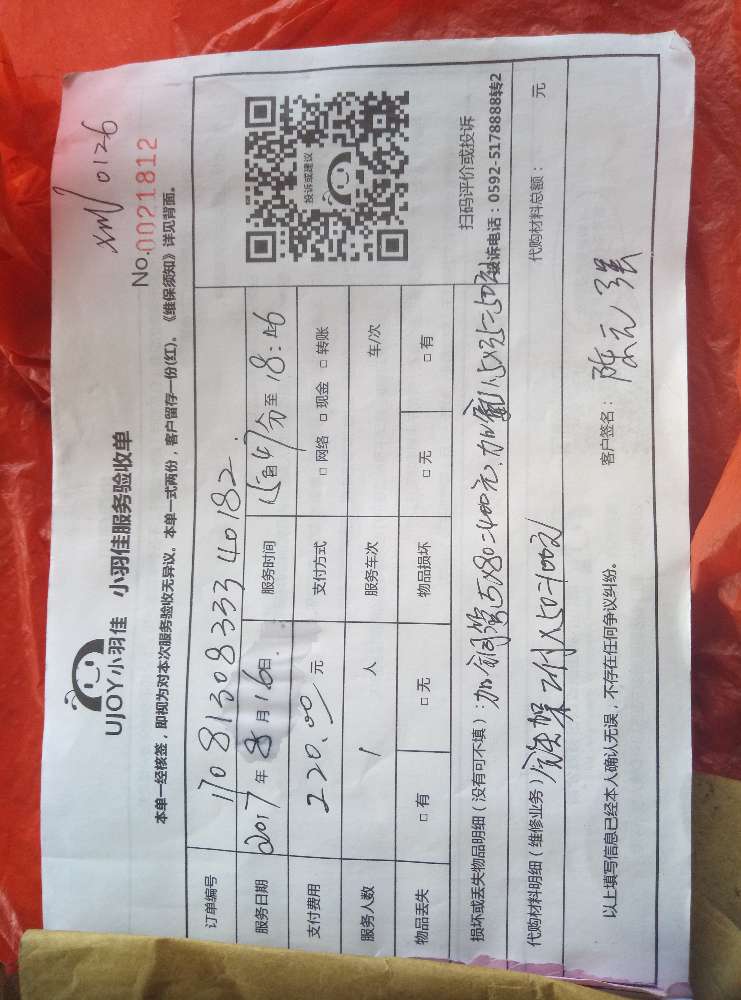 xmJ 0126
No.0021812
UJOY小羽佳 小羽佳服务验收单
本单一经核签，即视为对本次服务验收无异议。本单一式两份，客户留存一份(红)。《维保须知》详见背面。
订单编号 1708130833340182
服务日期 2017 年 8 月 16 日 服务时间 15 47 分 至 18:46
支付费用 220.00 元 支付方式 □ 网络 □ 现金 □ 转账
服务人数 1 人 服务车次 车/次
物品丢失 □ 有 □ 无 物品损坏 □ 无 □ 有
投诉或建议
扫码评价或投诉
投诉电话：0592-5178888转2
损坏或丢失物品明细（没有可不填）：加铜管5×80=400元，加
代购材料明细（维修业务） 架 2付×50=100元 代购材料总额： 元
以上填写信息已经本人确认无误，不存在任何争议纠纷。 客户签名： 陈元强